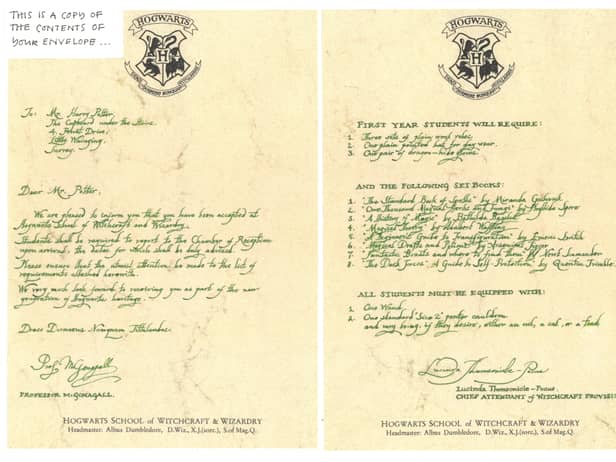 THIS IS A COPY OF
THE CONTENTS OF
YOUR ENVELOPE...
HOGWARTS
To: Mr Harry Potter,
The Cupboard under the Stairs
4, Privet Drive,
Little Whinging,
Surrey.
Dear Mr. Potter,
We are pleased to inform you that you have been accepted at
Hogwarts School of Witchcraft and Wizardry.
Students shall be required to report to the Chamber of Reception
upon arrival, the dates for which shall be duly advised.
Please ensure that the utmost attention be made to the list of
requirements attached herewith.
We very much look forward to receiving you as part of the new
generation of Hogwarts heritage.
Draco Dormiens Nunquam Titillandus.
Prof. McGonagall
PROFESSOR McGONAGALL.
HOGWARTS SCHOOL of WITCHCRAFT & WIZARDRY
Headmaster: Albus Dumbledore, D.Wiz., X.J.(sorc.), S.of Mag.Q.
HOGWARTS
FIRST YEAR STUDENTS WILL REQUIRE:
1. Three sets of plain work robes
2. One plain pointed hat for day wear.
3. One pair of dragon-hide gloves
AND THE FOLLOWING SET BOOKS:
1. "The Standard Book of Spells" by Miranda Goshawk
2. "One Thousand Magical Herbs and Fungi" by Phyllida Spore
3. "A History of Magic" by Bathilda Bagshot
4. "Magical Theory" by Adalbert Waffling
5. "A Beginners' Guide to Transfiguration" by Emeric Switch
6. "Magical Drafts and Potions" by Arsenius Jigger
7. "Fantastic Beasts and where to find them" by Newt Scamander
8. "The Dark Forces: A Guide to Self-Protection" by Quentin Trimble
ALL STUDENTS MUST BE EQUIPPED WITH:
1. One Wand
2. One standard 'Size 2' pewter cauldron
and may bring, if they desire, either an owl, a cat, or a toad
Lucinda Thomsonicle-Pocus
Lucinda Thomsonicle-Pocus
CHIEF ATTENDANT of WITCHCRAFT PROVISI
HOGWARTS SCHOOL of WITCHCRAFT & WIZARDRY
Headmaster: Albus Dumbledore, D.Wiz., X.J.(sorc.), S.of Mag.Q.